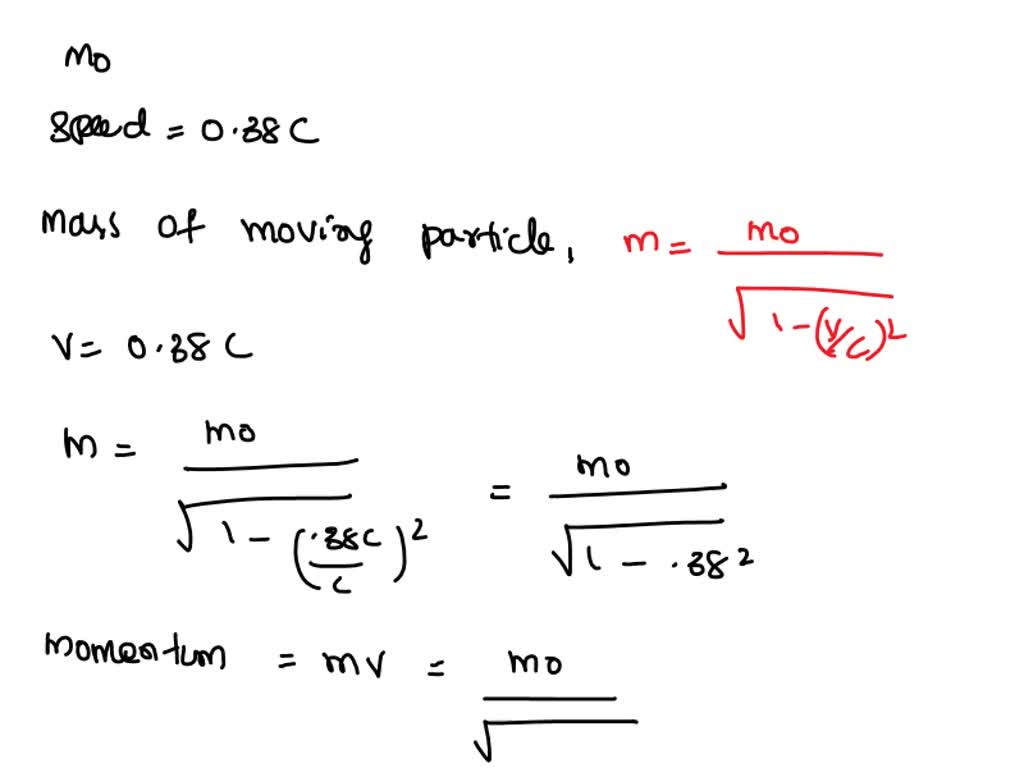 mo
speed = 0.38 C
mass of moving particle, m = mo / √(1 - (v/c)²)
v = 0.38 C
m = mo / √(1 - (.38c/c)²) = mo / √(1 - .38²)
momentum = mv = mo / √